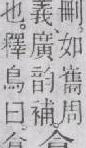 刪。如舊周
義廣韵補
也。釋鳥曰